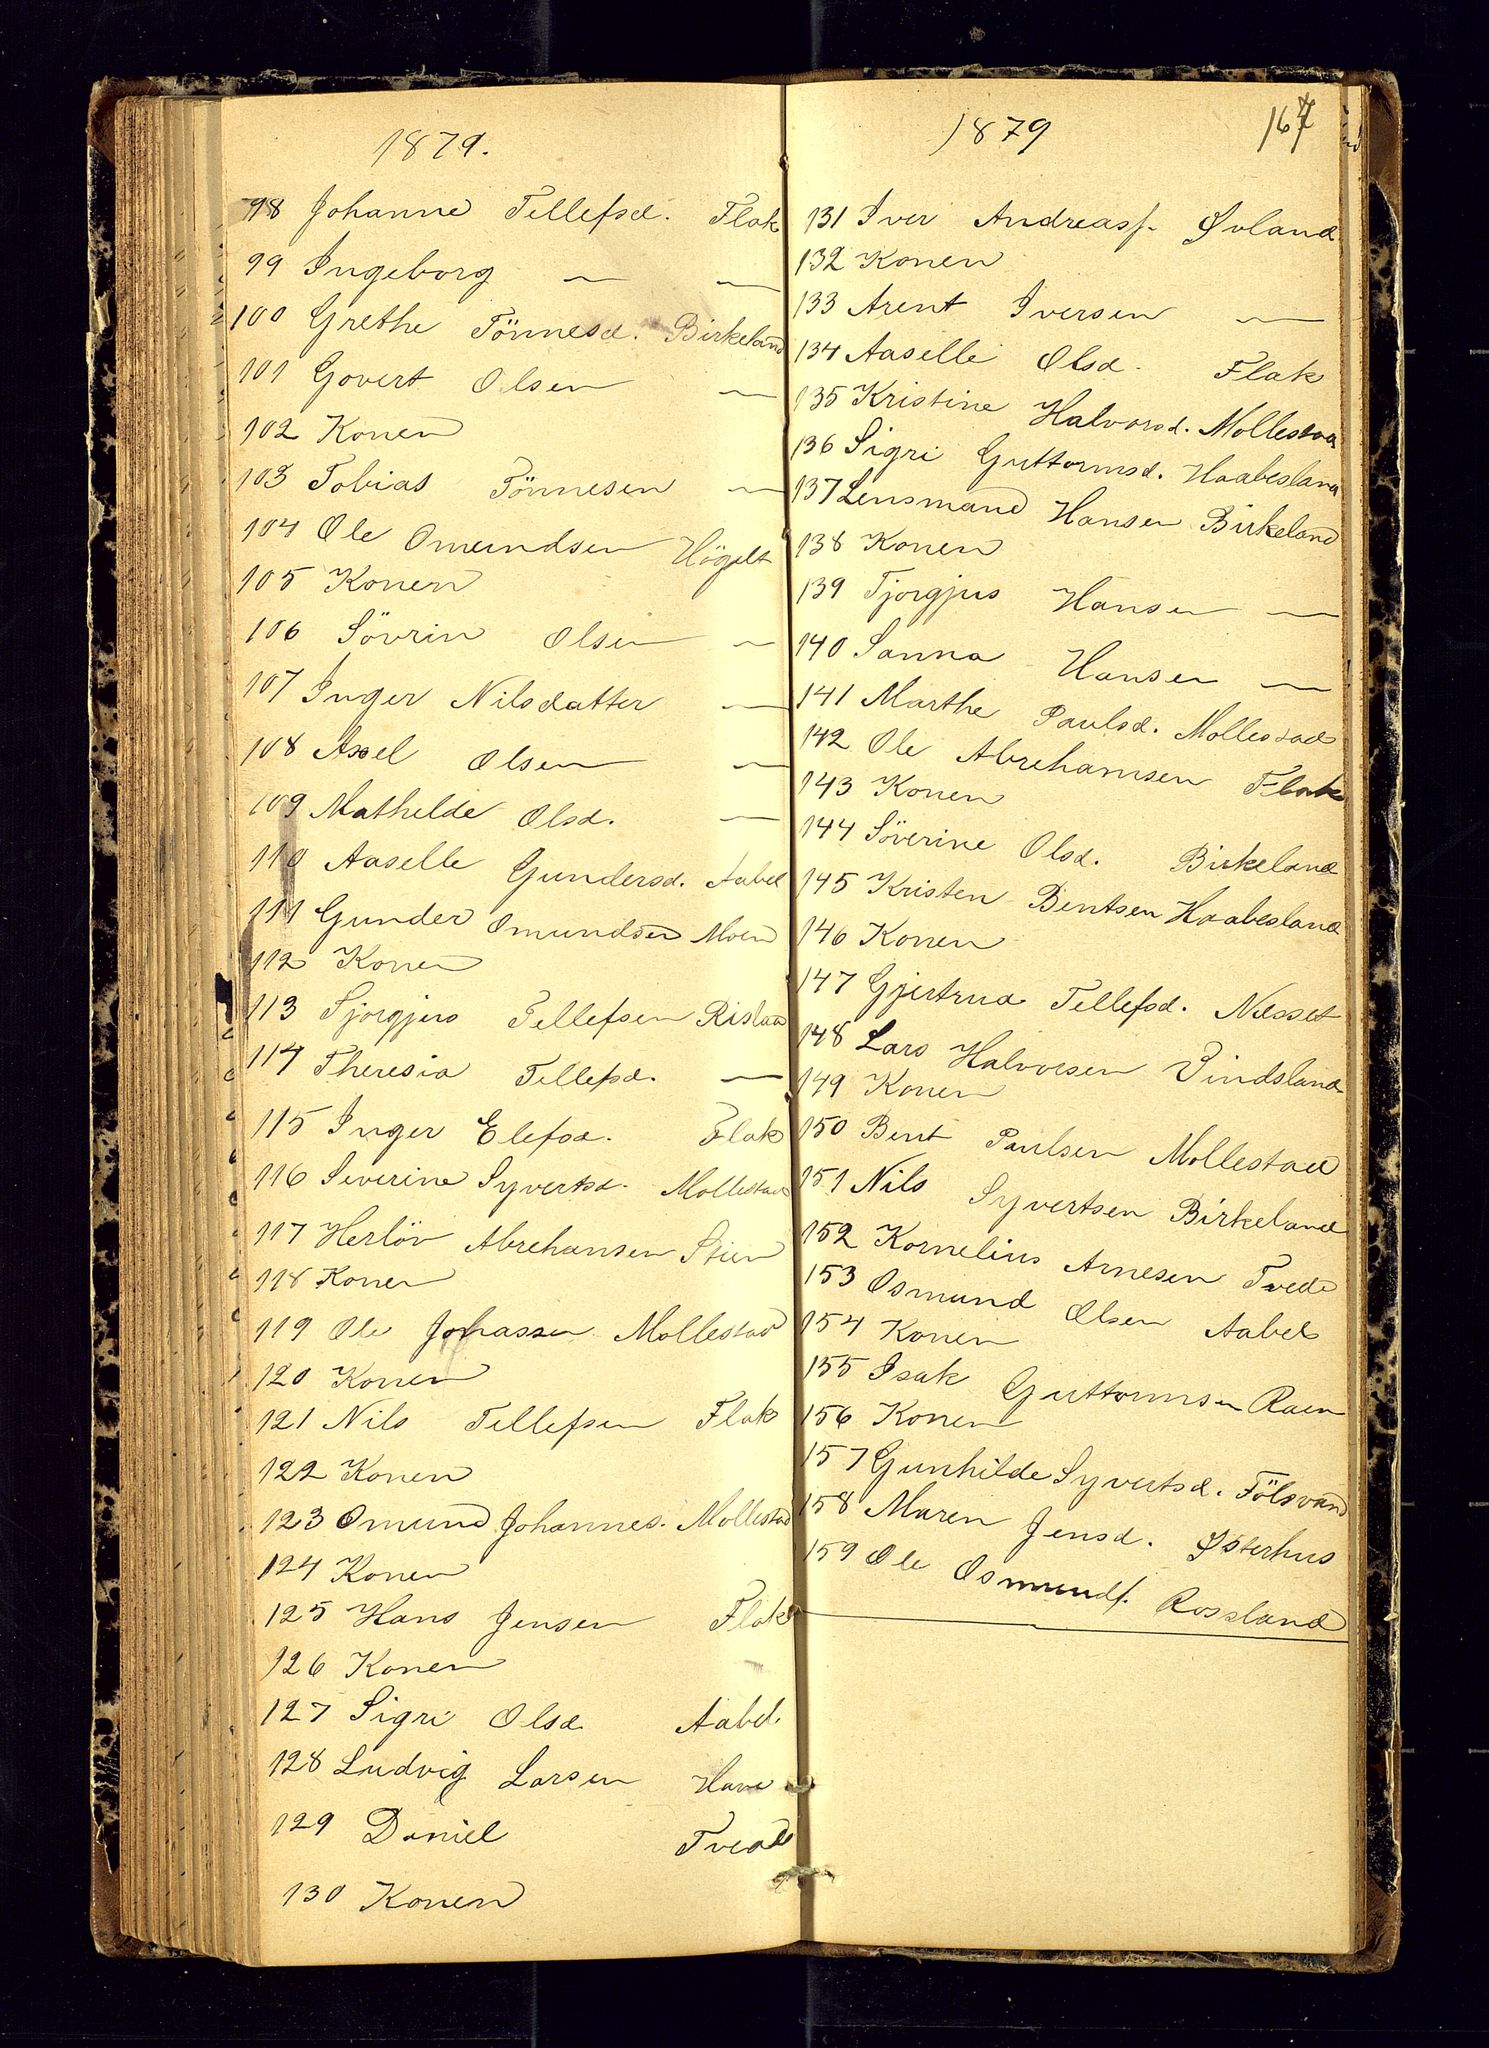 1879.
98 Johanne Tellefsd. Flak
99 Ingeborg — —
100 Grethe Tönnesd. Birkeland
101 Govert Olsen —
102 Konen
103 Tobias Tönnesen —
104 Ole Omundsen Högelt
105 Konen
106 Sövrin Olsen —
107 Inger Nilsdatter —
108 Axel Olsen —
109 Mathilde Olsd. —
110 Aaselle Gundersd. Aabel
111 Gunder Omundsen Moen
112 Konen
113 Sjorgjus Tellefsen Rislaa
114 Theresia Tellefsd. —
115 Inger Elefsd. Flak
116 Severine Syvertsd. Mollestad
117 Herlöv Abrehamsen Stien
118 Konen
119 Ole Johassen Mollestad
120 Konen
121 Nils Tellefsen Flak
122 Konen
123 Omund Johannes. Mollestad
124 Konen
125 Hans Jensen Flak
126 Konen
127 Sigri Olsd Aabel
128 Ludvig Larsen Have
129 Daniel Tvede
130 Konen
1879 167
131 Iver Andreass. Øvland
132 Konen
133 Arent Iversen —
134 Aaselle Olsd. Flak
135 Kristine Halvorsd. Mollestad
136 Sigri Guttormsd. Haabesland
137 Lensmand Hansen Birkeland
138 Konen
139 Tjorgjus Hansen —
140 Sanna Hansen —
141 Marthe Paulsd. Mollestad
142 Ole Abrehamsen Flak
143 Konen
144 Söverine Olsd. Birkeland
145 Kristen Bentsen Haabesland
146 Konen
147 Gjertrud Tellefsd. Næsset
148 Lars Halvorsen Vindsland
149 Konen
150 Bent Paulsen Mollestad
151 Nils Syvertsen Birkeland
152 Kornelius Arnesen Tvede
153 Osmund Olsen Aabel
154 Konen
155 Isak Guttormsen Raen
156 Konen
157 Gunhilde Syvertsd. Fölsvand
158 Maren Jensd. Østerhus
159 Ole Osmunds. Rossland